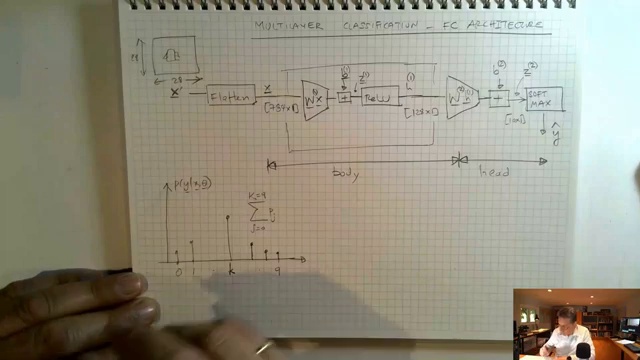 MULTILAYER CLASSIFICATION - FC ARCHITECTURE
28
28
x' Flatten x [787x1] W⁽¹⁾x b⁽¹⁾ + z⁽¹⁾ ReLU h⁽¹⁾ [128x1] b⁽²⁾ + z⁽²⁾ [10x1] SOFT MAX
ŷ
body head
P(y|x,θ)
K=9
Σ
j=0
0 1 k 9